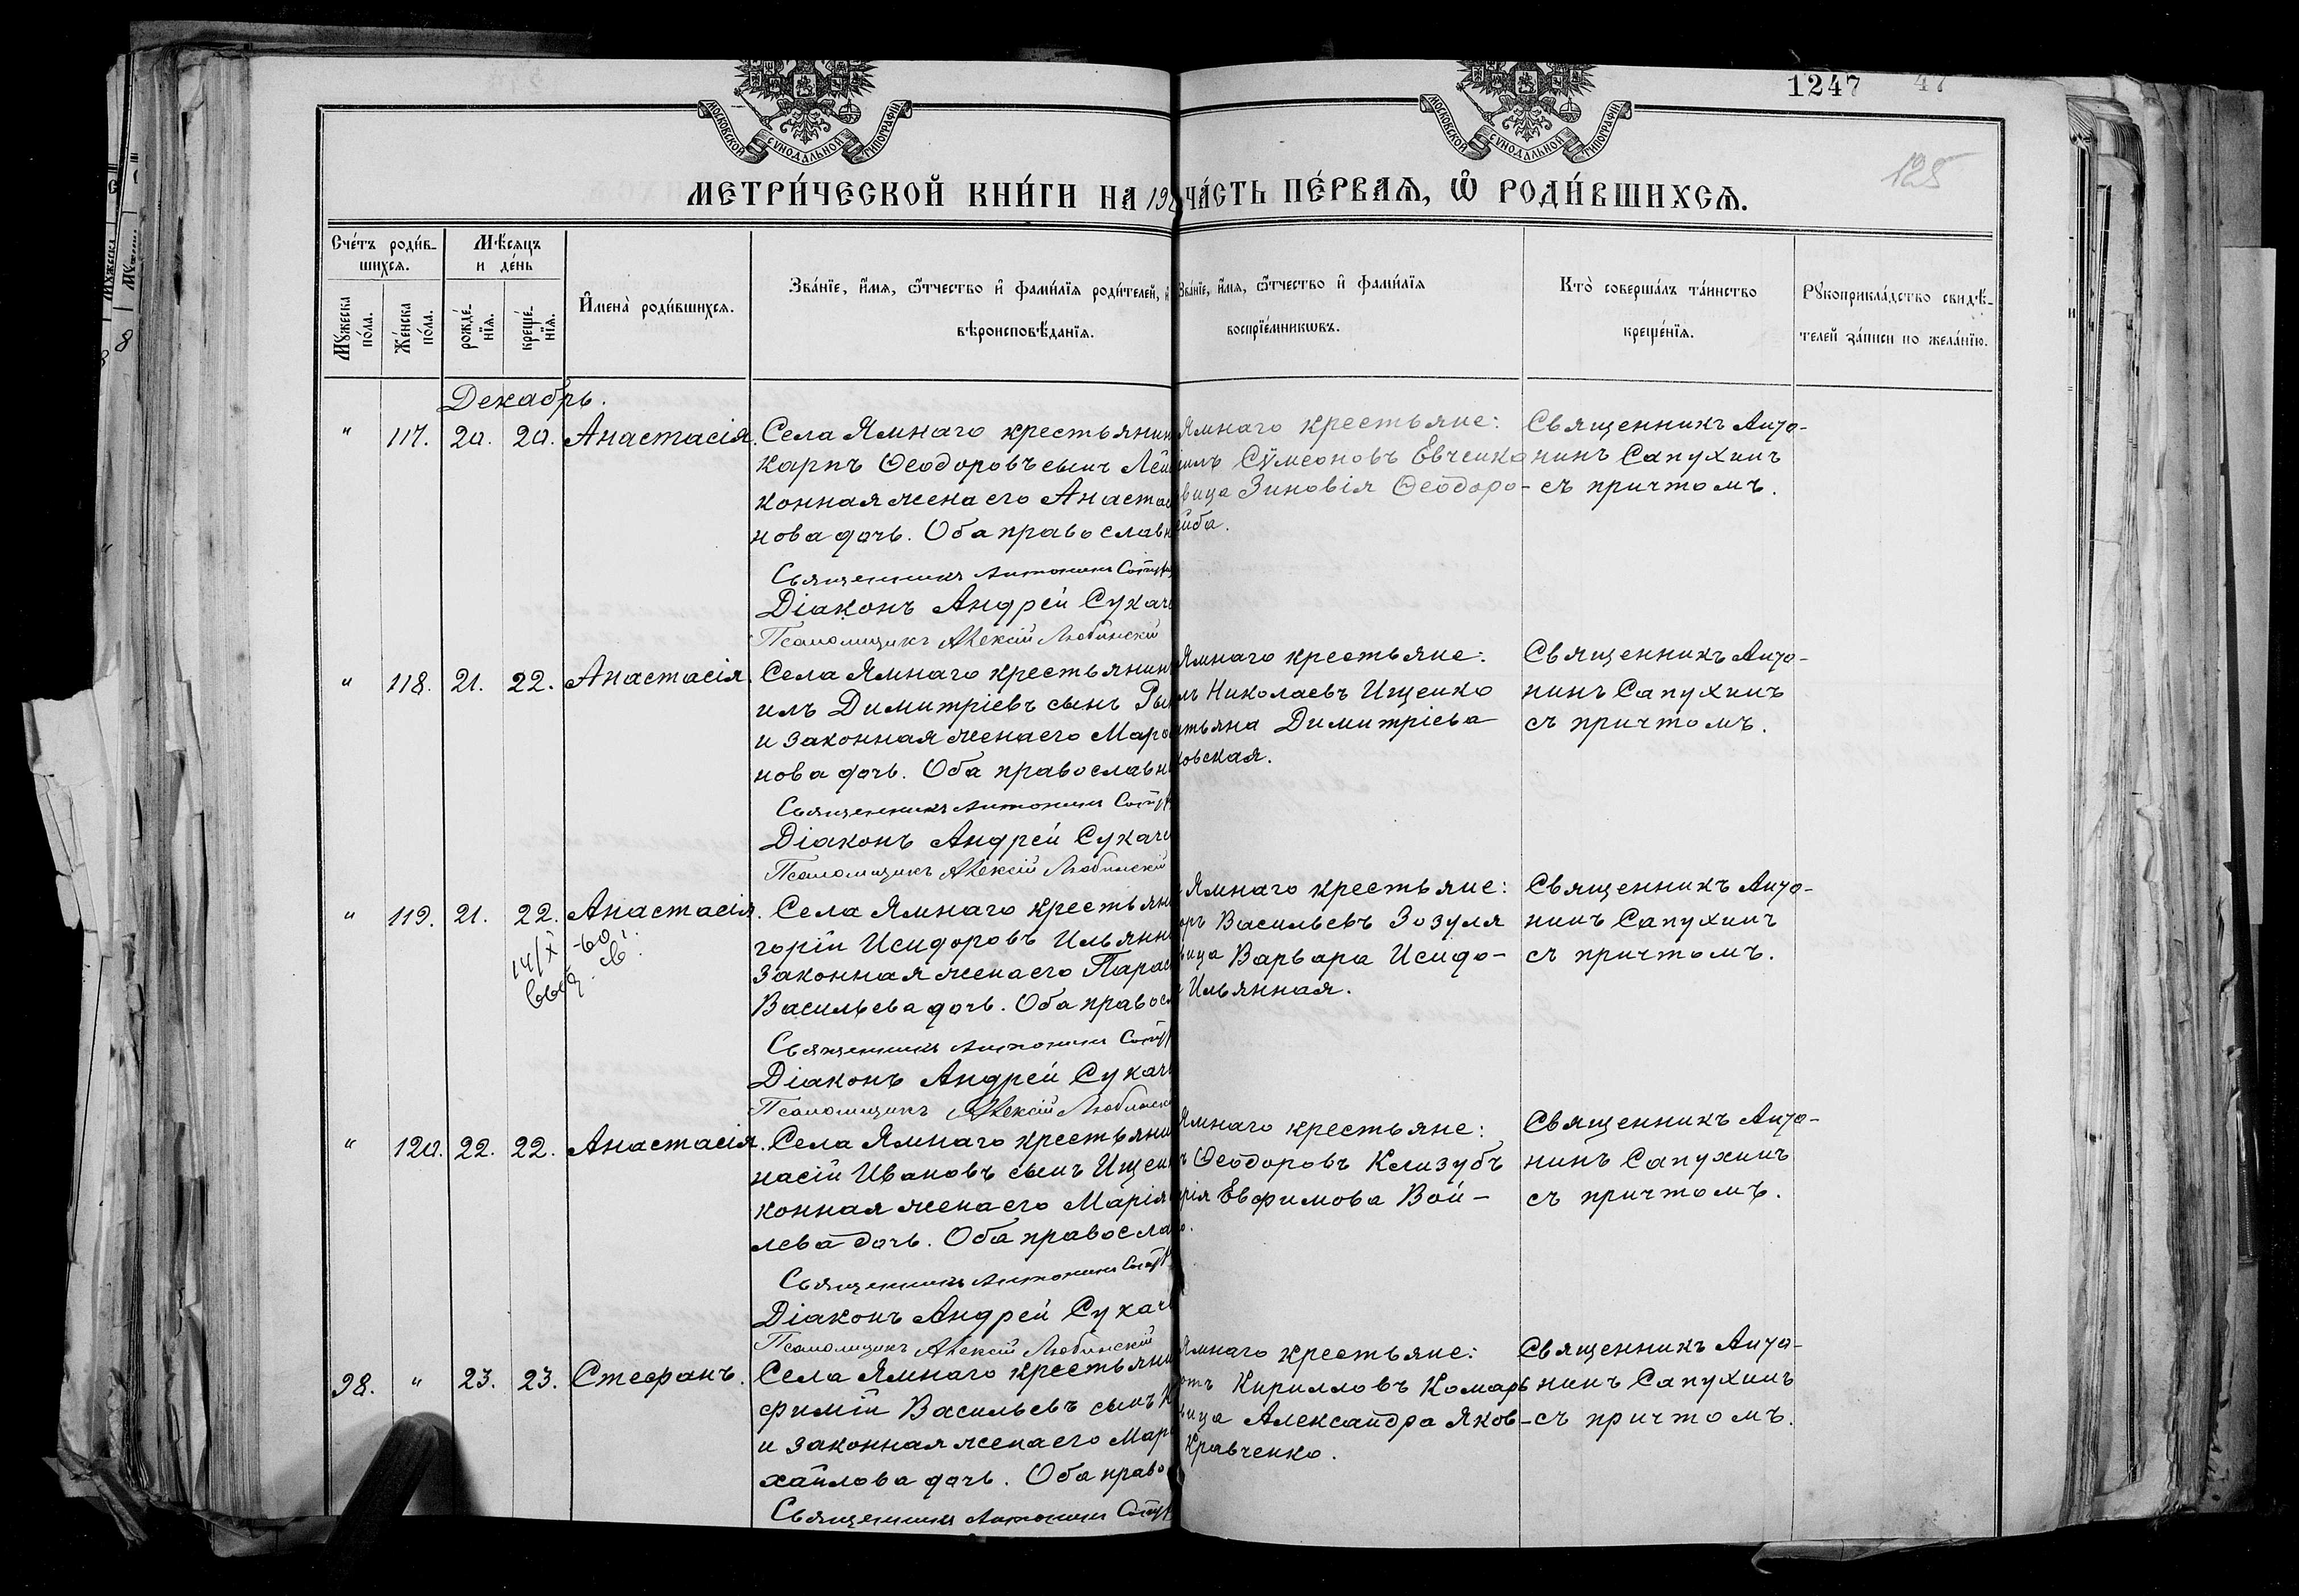 1247 47
125
МОСКОВСКОЙ СУНОДАЛЬНОЙ ТИПОГРАФІИ
МОСКОВСКОЙ СУНОДАЛЬНОЙ ТИПОГРАФІИ
МЕТРИ́ЧЕСКОЙ КНИ́ГИ НА 19
ЧА́СТЬ ПЕ́РВАѦ, Ѡ РОДИ́ВШИХСѦ.
Сче́тъ роди́в-
шихсѧ.
Мꙋжеска по́ла.
Же́нска по́ла.
Мѣ́сѧцъ
и де́нь
рожде́-
нїѧ.
креще́-
нїѧ.
И҆мена̀ роди́вшихсѧ.
Зва́нїе, и҆́мѧ, ѻ҆́тчество и҆ фами́лїѧ роди́телей, и҆
вѣроисповѣ́данїѧ.
Зва́нїе, и҆́мѧ, ѻ҆́тчество и҆ фами́лїѧ
воспрїе́мникѡвъ.
Кто̀ соверша́лъ та́инство
креще́нїѧ.
Рꙋкоприкла́дство свидѣ́-
телей за́писи по жела́нїю.
Декабрь.
" 117. 20. 20. Анастасія.
Села Ямнаго крестьянин
Карпъ Ѳеодоровъ сынъ Лей
конная жена его Анастас
нова дочь. Оба православн
Священникъ Антонинъ Сапух
Діаконъ Андрей Сукаче
Псаломщикъ Алексій Любинскій
Ямнаго крестьяне:
илъ Сѵмеоновъ Евченко
вица Зиновія Ѳеодоро-
йба.
Священникъ Анто-
нинъ Сапухинъ
съ причтомъ.
" 118. 21. 22. Анастасія.
Села Ямнаго крестьянинъ
илъ Димитріевъ сынъ Рын
и законная жена его Маро
нова дочь. Оба православн
Священникъ Антонинъ Сапух
Діаконъ Андрей Сукаче
Псаломщикъ Алексій Любинскій
Ямнаго крестьяне:
лъ Николаевъ Ищенко
тьяна Димитріева
ковская.
Священникъ Анто-
нинъ Сапухинъ
съ причтомъ.
" 119. 21. 22. Анастасія.
14/X -60
Села Ямнаго крестьян
горій Исидоровъ Ильянн
законная жена его Парас
Васильева дочь. Оба правосл
Священникъ Антонинъ Сапух
Діаконъ Андрей Сукаче
Псаломщикъ Алексій Любинск
Ямнаго крестьяне:
оръ Васильевъ Зозуля
вица Варвара Исидо-
Ильянная.
Священникъ Анто-
нинъ Сапухинъ
съ причтомъ.
" 120. 22. 22. Анастасія.
Села Ямнаго крестьяни
насій Ивановъ сынъ Ищен
конная жена его Марія
лева дочь. Оба правосла
Священникъ Антонинъ Сапух
Діаконъ Андрей Сукаче
Псаломщикъ Алексій Любинскій
Ямнаго крестьяне:
ъ Ѳеодоровъ Клизубъ
рія Евфимова Вой-
о.
Священникъ Анто-
нинъ Сапухинъ
съ причтомъ.
98. " 23. 23. Стефанъ.
Села Ямнаго крестьяни
фимій Васильевъ сынъ К
и законная жена его Мар
хайлова дочь. Оба право
Священникъ Антонинъ Сапух
Ямнаго крестьяне:
отъ Кирилловъ Комаръ
вица Александра Яков-
Кравченко.
Священникъ Анто-
нинъ Сапухинъ
съ причтомъ.